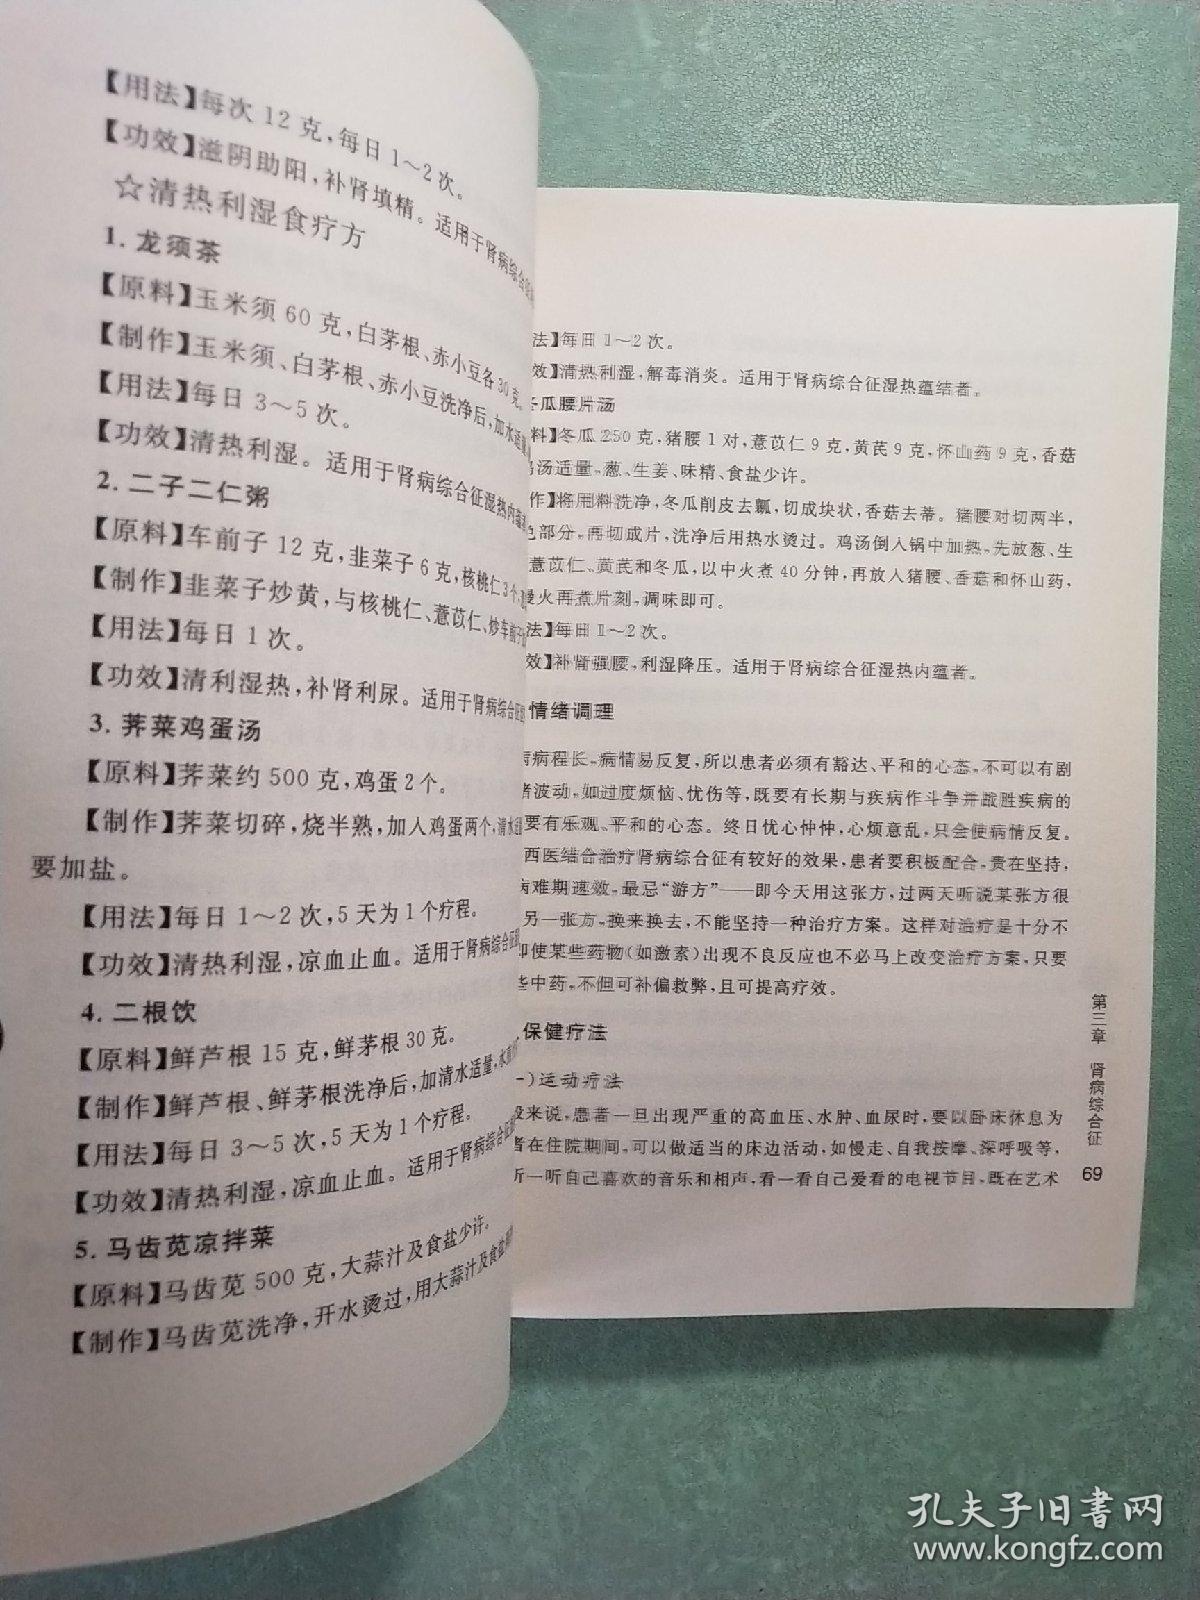 【用法】每次12克，每日1～2次。
【功效】滋阴助阳，补肾填精。适用于肾病综合征
☆清热利湿食疗方
1. 龙须茶
【原料】玉米须60克，白茅根、赤小豆各30克。
【制作】玉米须、白茅根、赤小豆洗净后，加水适
【用法】每日3～5次。
【功效】清热利湿。适用于肾病综合征湿热内蕴
2. 二子二仁粥
【原料】车前子12克，韭菜子6克，核桃仁3个，
【制作】韭菜子炒黄，与核桃仁、薏苡仁、炒车前子
【用法】每日1次。
【功效】清利湿热，补肾利尿。适用于肾病综合征
3. 荠菜鸡蛋汤
【原料】荠菜约500克，鸡蛋2个。
【制作】荠菜切碎，烧半熟，加入鸡蛋两个，清水
要加盐。
【用法】每日1～2次，5天为1个疗程。
【功效】清热利湿，凉血止血。适用于肾病综合征
4. 二根饮
【原料】鲜芦根15克，鲜茅根30克。
【制作】鲜芦根、鲜茅根洗净后，加清水适量，水
【用法】每日3～5次，5天为1个疗程。
【功效】清热利湿，凉血止血。适用于肾病综合征
5. 马齿苋凉拌菜
【原料】马齿苋500克，大蒜汁及食盐少许。
【制作】马齿苋洗净，开水烫过，用大蒜汁及食盐
法】每日1～2次。
效】清热利湿，解毒消炎。适用于肾病综合征湿热蕴结者。
冬瓜腰片汤
料】冬瓜250克，猪腰1对，薏苡仁9克，黄芪9克，怀山药9克，香菇
鸡汤适量，葱、生姜、味精、食盐少许。
作】将用料洗净，冬瓜削皮去瓤，切成块状，香菇去蒂。猪腰对切两半，
色部分，再切成片，洗净后用热水烫过。鸡汤倒入锅中加热，先放葱、生
薏苡仁、黄芪和冬瓜，以中火煮40分钟，再放入猪腰、香菇和怀山药，
慢火再煮片刻，调味即可。
法】每日1～2次。
效】补肾强腰，利湿降压。适用于肾病综合征湿热内蕴者。
情绪调理
病程长，病情易反复，所以患者必须有豁达、平和的心态，不可以有剧
者波动，如过度烦恼、忧伤等，既要有长期与疾病作斗争并战胜疾病的
要有乐观、平和的心态。终日忧心忡忡，心烦意乱，只会使病情反复。
西医结合治疗肾病综合征有较好的效果，患者要积极配合，贵在坚持，
病难期速效，最忌“游方”——即今天用这张方，过两天听说某张方很
另一张方，换来换去，不能坚持一种治疗方案。这样对治疗是十分不
即使某些药物（如激素）出现不良反应也不必马上改变治疗方案，只要
些中药，不但可补偏救弊，且可提高疗效。
保健疗法
一）运动疗法
般来说，患者一旦出现严重的高血压、水肿、血尿时，要以卧床休息为
者在住院期间，可以做适当的床边活动，如慢走、自我按摩、深呼吸等，
听一听自己喜欢的音乐和相声，看一看自己爱看的电视节目，既在艺术
第三章 肾病综合征
69
孔夫子旧书网
www.kongfz.com